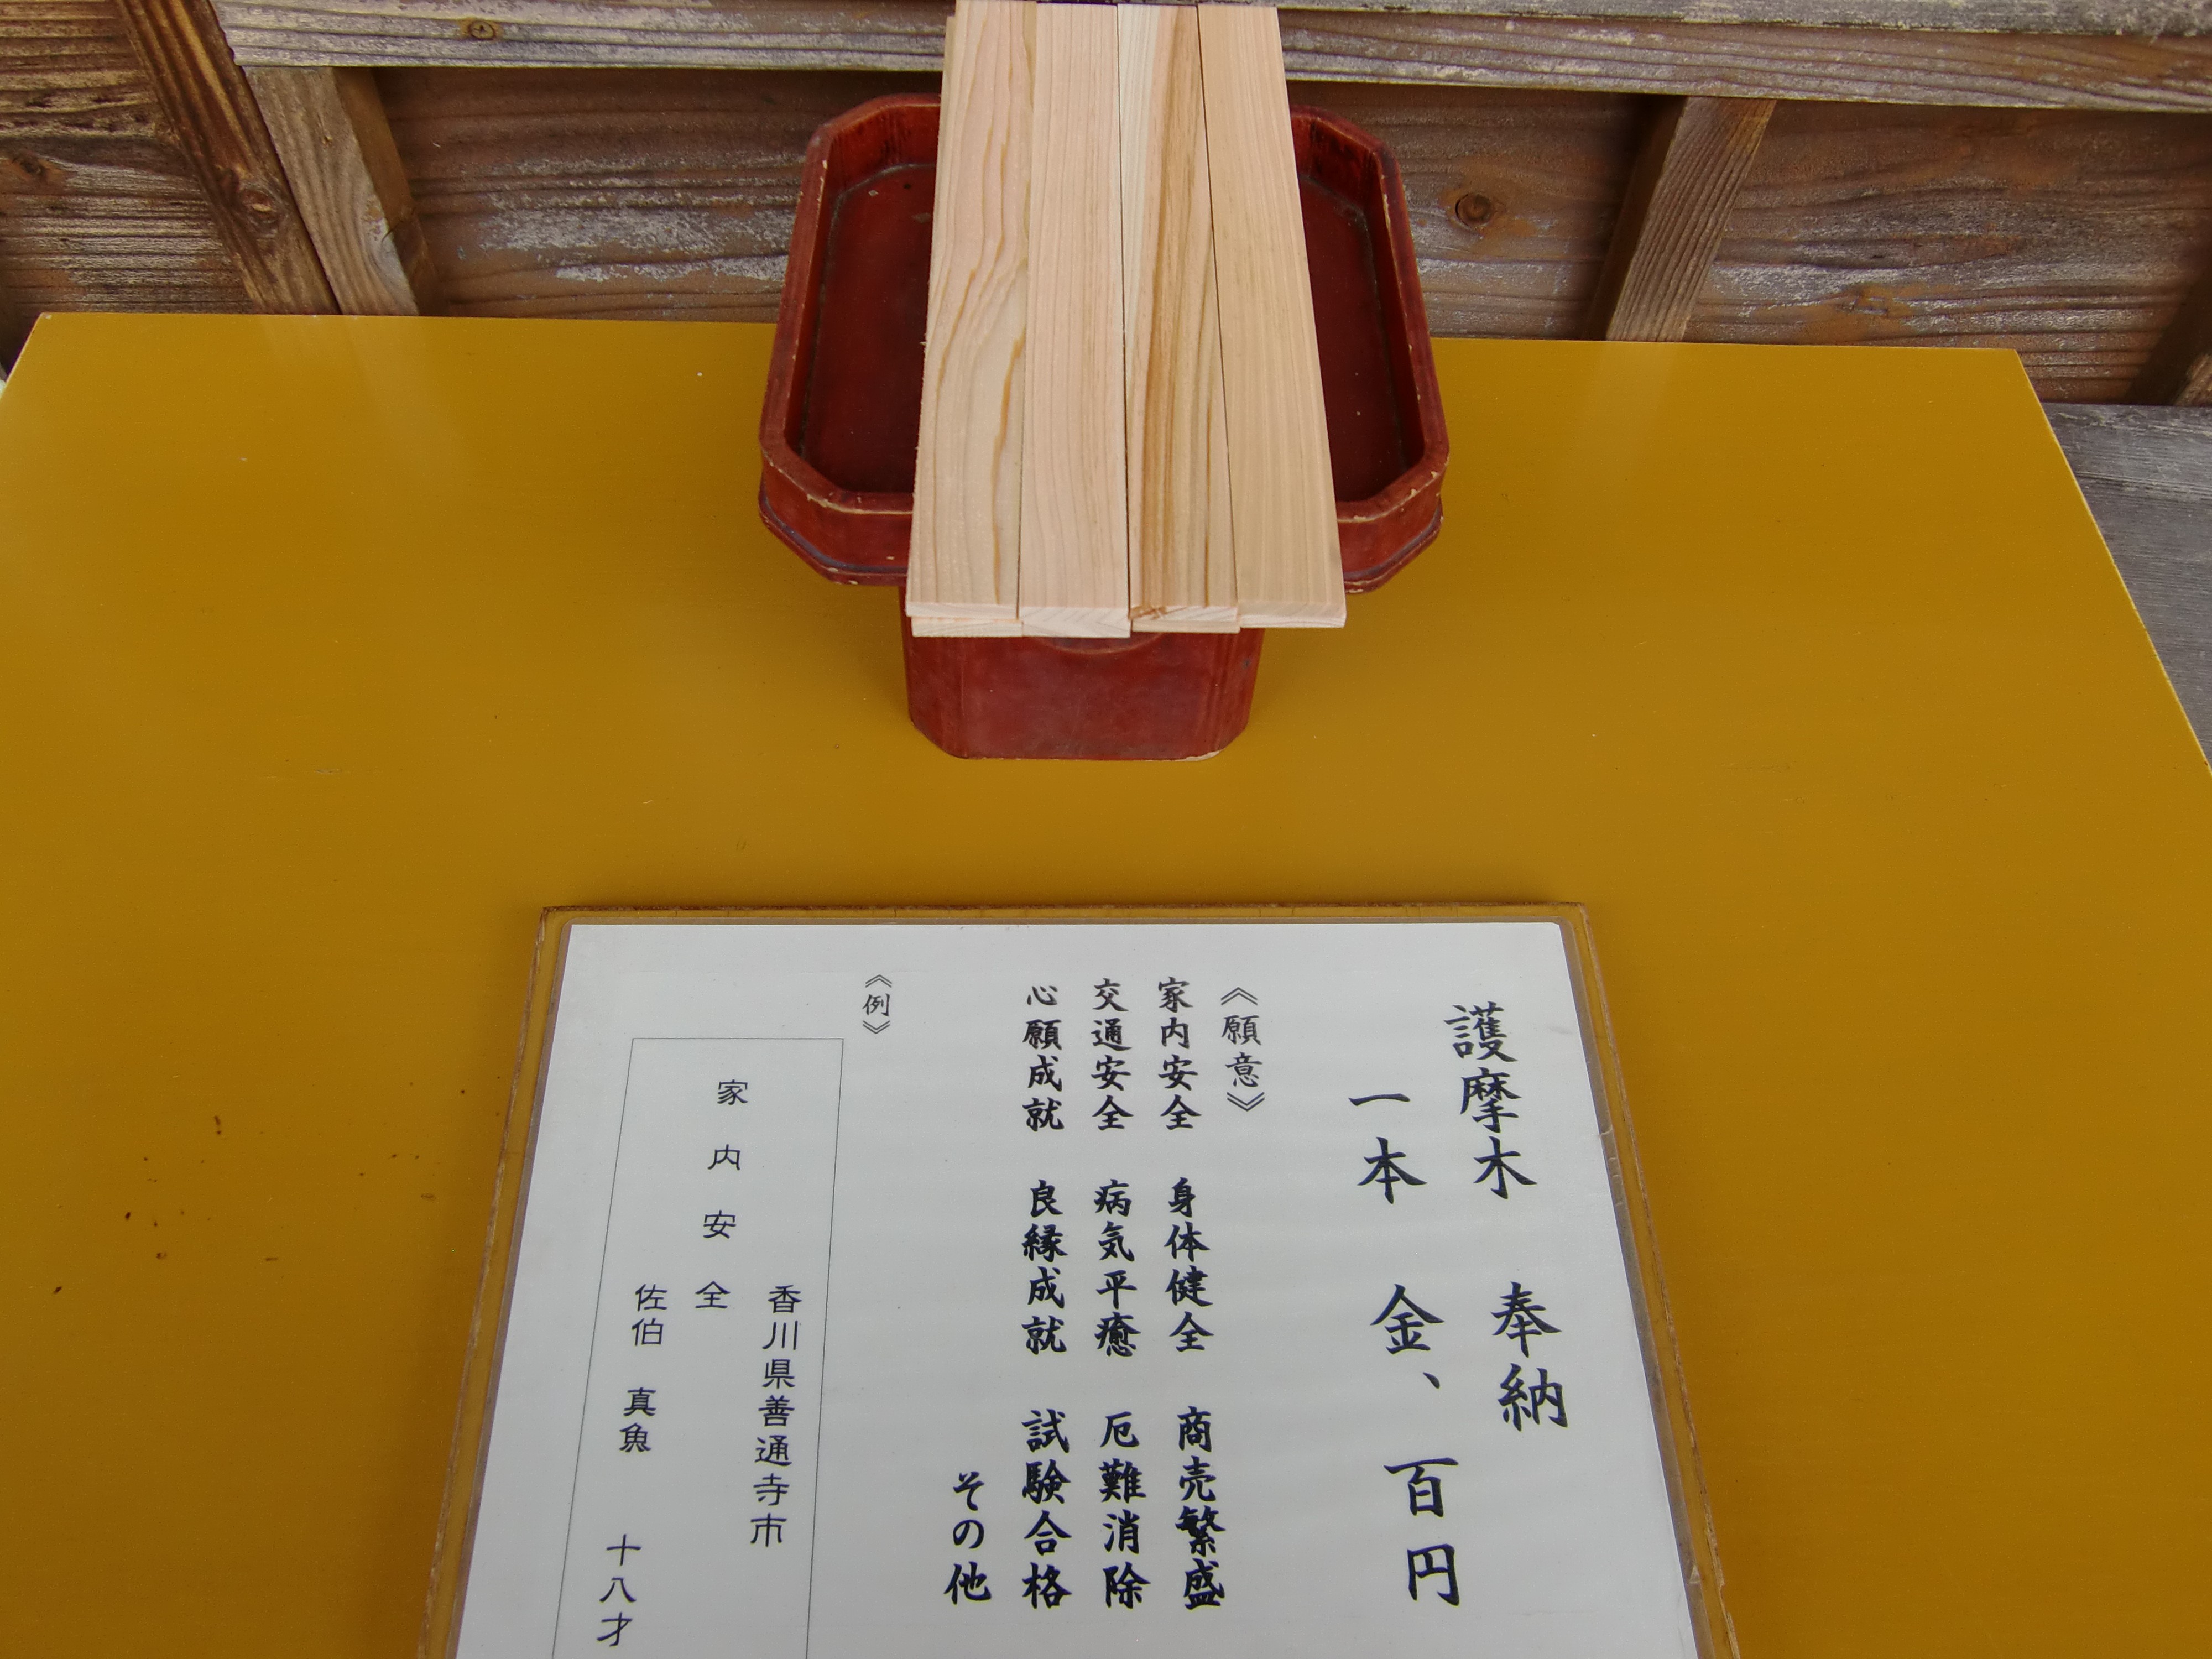 護摩木 奉納
一本 金、百円
《願意》
家内安全 身体健全 商売繁盛
交通安全 病気平癒 厄難消除
心願成就 良縁成就 試験合格
その他
《例》
香川県善通寺市
家内安全
佐伯 真魚 十八才